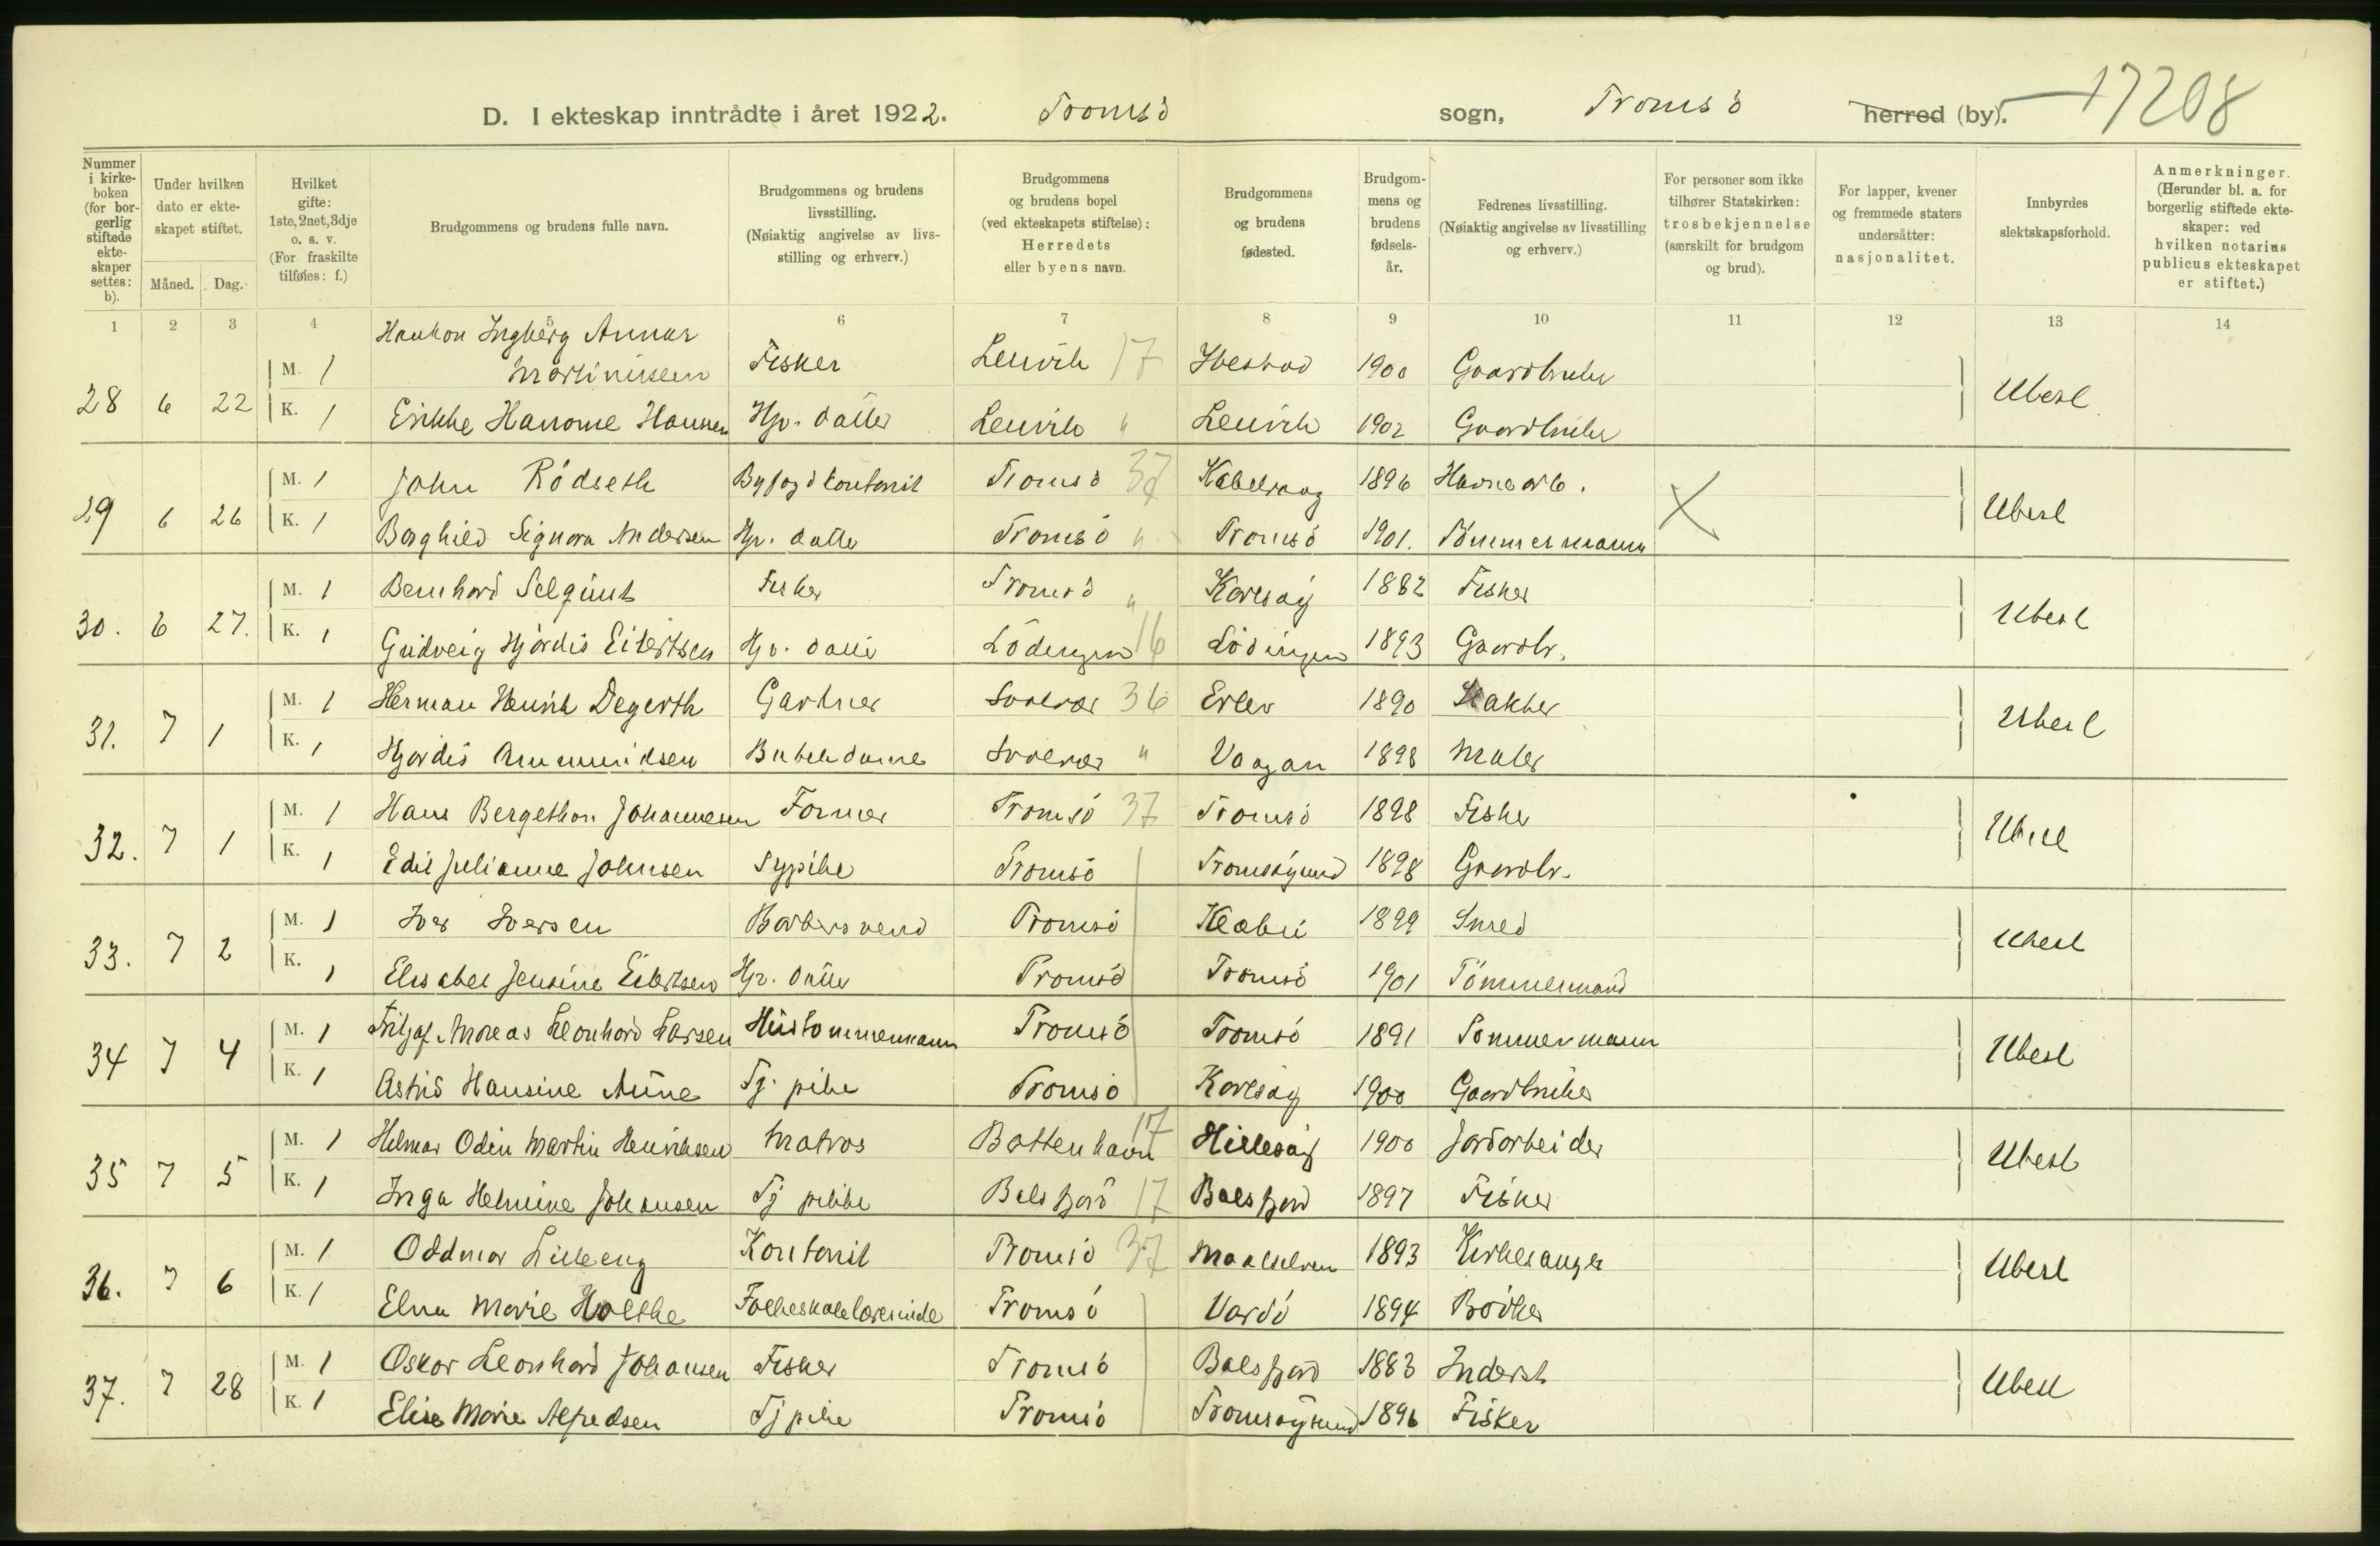 D. I ekteskap inntrådte i året 1922. Tromsö sogn, Tromsö herred (by). 17208
Nummer i kirkeboken (for borgerlig stiftede ekteskaper settes: b).
Under hvilken dato er ekteskapet stiftet.
Måned. Dag.
Hvilket gifte: 1ste, 2net, 3dje o. s. v. (For fraskilte tilføies: f.)
Brudgommens og brudens fulle navn.
Brudgommens og brudens livsstilling. (Nøiaktig angivelse av livsstilling og erhverv.)
Brudgommens og brudens bopel (ved ekteskapets stiftelse): Herredets eller byens navn.
Brudgommens og brudens fødested.
Brudgommens og brudens fødselsår.
Fedrenes livsstilling. (Nøiaktig angivelse av livsstilling og erhverv.)
For personer som ikke tilhører Statskirken: trosbekjennelse (særskilt for brudgom og brud).
For lapper, kvener og fremmede staters undersåtter: nasjonalitet.
Innbyrdes slektskapsforhold.
Anmerkninger. (Herunder bl. a. for borgerlig stiftede ekteskaper: ved hvilken notarius publicus ekteskapet er stiftet.)
1 2 3 4 5 6 7 8 9 10 11 12 13 14
Haakon Ingberg Annar
28 6 22 M. 1 Martinussen Fisker Lenvik 17 Ibestad 1900 Gaardbruker Ubesl.
K. 1 Erikke Hansine Hansen Hjv. datter Lenvik " Lenvik 1902 Gaardbruker
29 6 26 M. 1 John Rödseth Byfogdkontorist Tromsö 37 Kabelvaag 1896 Havnearb. X Ubesl
K. 1 Borghild Signora Andersen Hjv. datter Tromsö " Tromsö 1901. Tömmermann
30. 6 27. M. 1 Bernhard Selqvist Fisker Tromsö " Karlsöy 1882 Fisker Ubesl
K. 1 Gudveig Hjördis Eilertsen Hjv. datter Lödingen 16 Lödingen 1893 Gaardbr.
31. 7 1 M. 1 Herman Henrik Degerth Gartner Svolvær 36 1890 Ubesl
K. 1 Hjördis Ammundsen Butikdame Svolvær " Vaagan 1898 Maler
32. 7 1 M. 1 Hans Bergethon Johannesen Former Tromsö 37 Tromsö 1898 Fisker Ubesl
K. 1 Edit Julianne Johnsen Sypike Tromsö Tromsöysund 1898 Gaardbr.
33. 7 2 M. 1 Ivar Iversen Barbersvend Tromsö Klæbu 1899 Smed Ubesl
K. 1 Elisabet Jensine Eilertsen Hjv. datter Tromsö Tromsö 1901 Tömmermand
34 7 4 M. 1 Fritjof Andreas Leonhard Larsen Hustömmermann Tromsö Tromsö 1891 Tömmermann Ubesl
K. 1 Astrid Hansine Aune Tj. pike Tromsö Karlsöy 1900 Gaardbruker
35 7 5 M. 1 Helmar Odin Martin Henriksen Matros Bottenhavn 17 Hillesöy 1900 Jordarbeider Ubesl
K. 1 Inga Helmine Johansen Tj pike Balsfjord 17 Balsfjord 1897 Fisker
36. 7 6 M. 1 Oddmar Lilleeng Kontorist Tromsö 37 Maalselven 1893 Kirkesanger Ubesl
K. 1 Elna Marie Holthe Folkeskolelærerinde Tromsö Vardö 1894 Bödker
37. 7 28 M. 1 Oskar Leonhard Johansen Fisker Tromsö Balsfjord 1883 Inderst Ubesl
K. 1 Elise Marie Alfredsen Tj pike Tromsö Tromsöysund 1896 Fisker